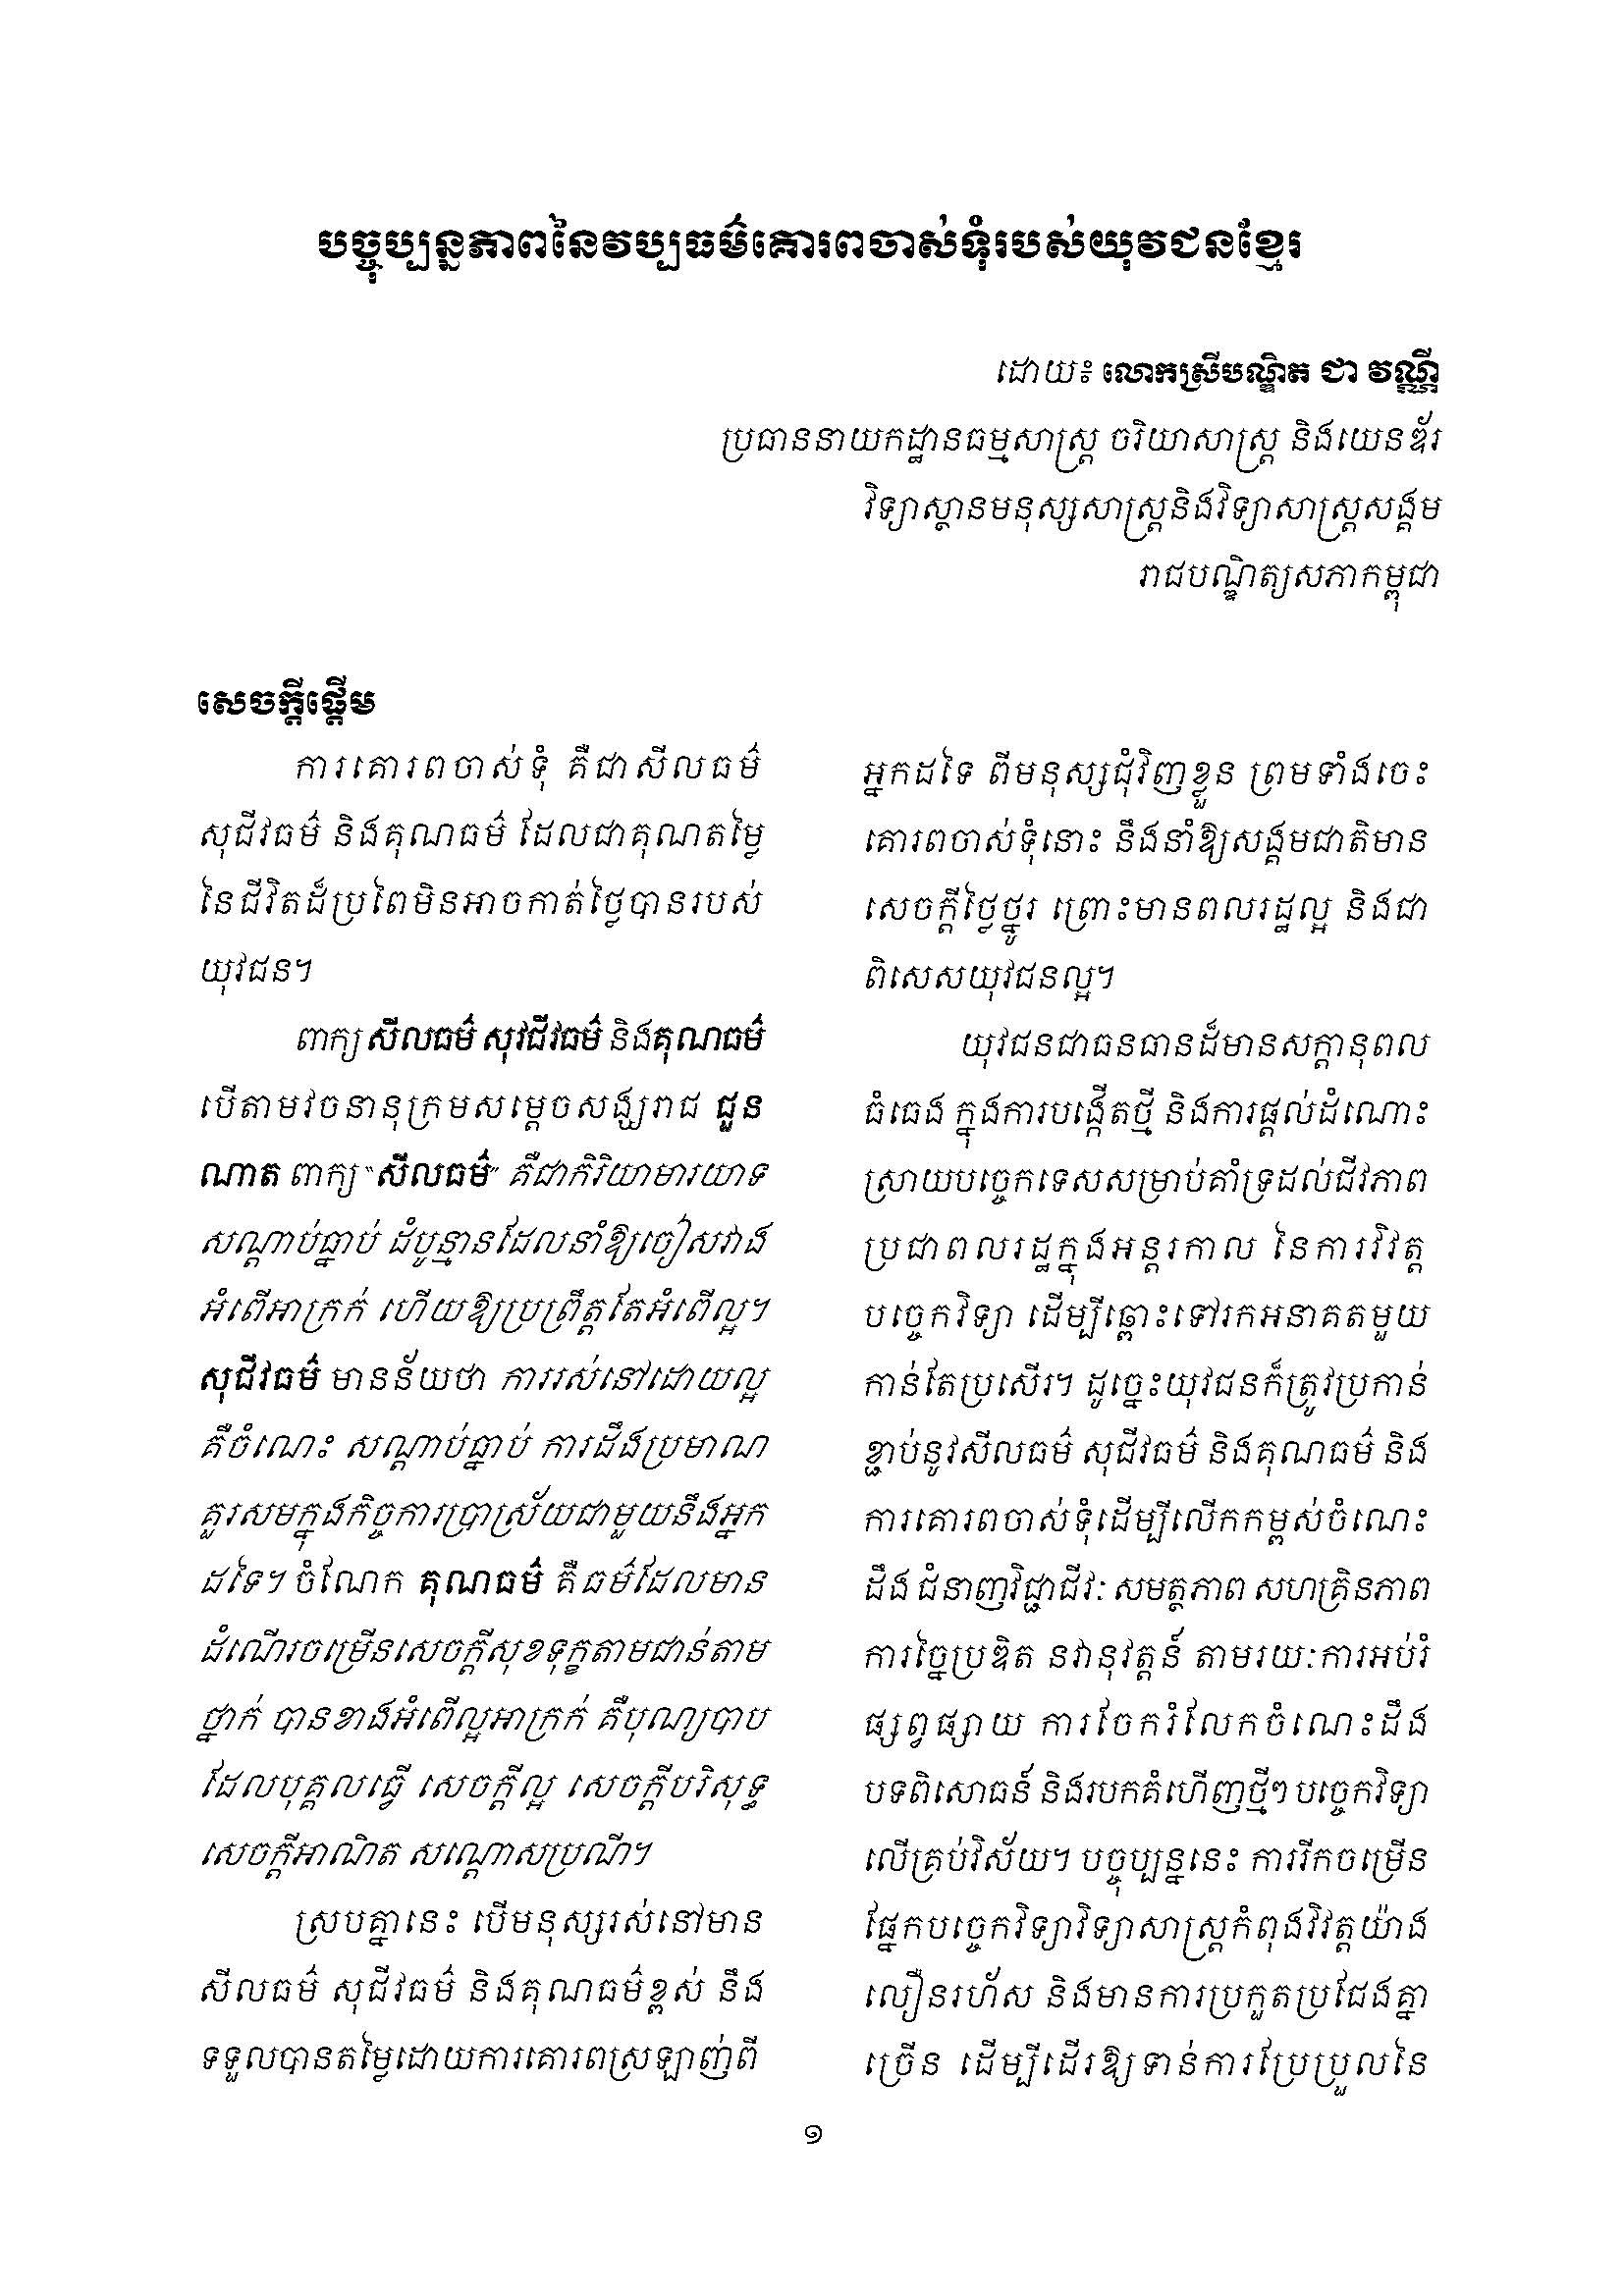 បច្ចុប្បន្នភាពនៃវប្បធម៌គោរពចាស់ទុំរបស់យុវជនខ្មែរ
ដោយ៖ លោកស្រីបណ្ឌិត ជា វណ្ណី
ប្រធាននាយកដ្ឋានធម្មសាស្ត្រ ចរិយាសាស្ត្រ និងយេនឌ័រ
វិទ្យាស្ថានមនុស្សសាស្ត្រនិងវិទ្យាសាស្ត្រសង្គម
រាជបណ្ឌិត្យសភាកម្ពុជា
សេចក្តីផ្តើម
ការគោរពចាស់ទុំ គឺជាសីលធម៌
សុជីវធម៌ និងគុណធម៌ ដែលជាគុណតម្លៃ
នៃជីវិតដ៏ប្រពៃមិនអាចកាត់ថ្លៃបានរបស់
យុវជន។
ពាក្យ សីលធម៌ សុវជីវធម៌ និងគុណធម៌
បើតាមវចនានុក្រមសម្តេចសង្ឃរាជ ជួន
ណាត ពាក្យ “សីលធម៌” គឺជាកិរិយាមារយាទ
សណ្តាប់ធ្នាប់ ដំបូន្មានដែលនាំឱ្យចៀសវាង
អំពើអាក្រក់ ហើយឱ្យប្រព្រឹត្តតែអំពើល្អ។
សុជីវធម៌ មានន័យថា ការរស់នៅដោយល្អ
គឺចំណេះ សណ្តាប់ធ្នាប់ ការដឹងប្រមាណ
គួរសមក្នុងកិច្ចការប្រាស្រ័យជាមួយនឹងអ្នក
ដទៃ។ ចំណែក គុណធម៌ គឺធម៌ដែលមាន
ដំណើរចម្រើនសេចក្តីសុខទុក្ខតាមជាន់តាម
ថ្នាក់ បានខាងអំពើល្អអាក្រក់ គឺបុណ្យបាប
ដែលបុគ្គលធ្វើ សេចក្តីល្អ សេចក្តីបរិសុទ្ធ
សេចក្តីអាណិត សណ្តោសប្រណី។
ស្របគ្នានេះ បើមនុស្សរស់នៅមាន
សីលធម៌ សុជីវធម៌ និងគុណធម៌ខ្ពស់ នឹង
ទទួលបានតម្លៃដោយការគោរពស្រឡាញ់ពី
អ្នកដទៃ ពីមនុស្សជុំវិញខ្លួន ព្រមទាំងចេះ
គោរពចាស់ទុំនោះ នឹងនាំឱ្យសង្គមជាតិមាន
សេចក្តីថ្លៃថ្នូរ ព្រោះមានពលរដ្ឋល្អ និងជា
ពិសេសយុវជនល្អ។
យុវជនជាធនធានដ៏មានសក្តានុពល
ធំធេង ក្នុងការបង្កើតថ្មី និងការផ្តល់ដំណោះ
ស្រាយបច្ចេកទេសសម្រាប់គាំទ្រដល់ជីវភាព
ប្រជាពលរដ្ឋក្នុងអន្តរកាល នៃការវិវត្ត
បច្ចេកវិទ្យា ដើម្បីឆ្ពោះទៅរកអនាគតមួយ
កាន់តែប្រសើរ។ ដូច្នេះយុវជនក៏ត្រូវប្រកាន់
ខ្ជាប់នូវសីលធម៌ សុជីវធម៌ និងគុណធម៌ និង
ការគោរពចាស់ទុំដើម្បីលើកកម្ពស់ចំណេះ
ដឹង ជំនាញវិជ្ជាជីវៈ សមត្ថភាព សហគ្រិនភាព
ការច្នៃប្រឌិត នវានុវត្តន៍ តាមរយៈការអប់រំ
ផ្សព្វផ្សាយ ការចែករំលែកចំណេះដឹង
បទពិសោធន៍ និងរបកគំហើញថ្មីៗ បច្ចេកវិទ្យា
លើគ្រប់វិស័យ។ បច្ចុប្បន្ននេះ ការរីកចម្រើន
ផ្នែកបច្ចេកវិទ្យាវិទ្យាសាស្ត្រកំពុងវិវត្តយ៉ាង
លឿនរហ័ស និងមានការប្រកួតប្រជែងគ្នា
ច្រើន ដើម្បីដើរឱ្យទាន់ការប្រែប្រួលនៃ
១